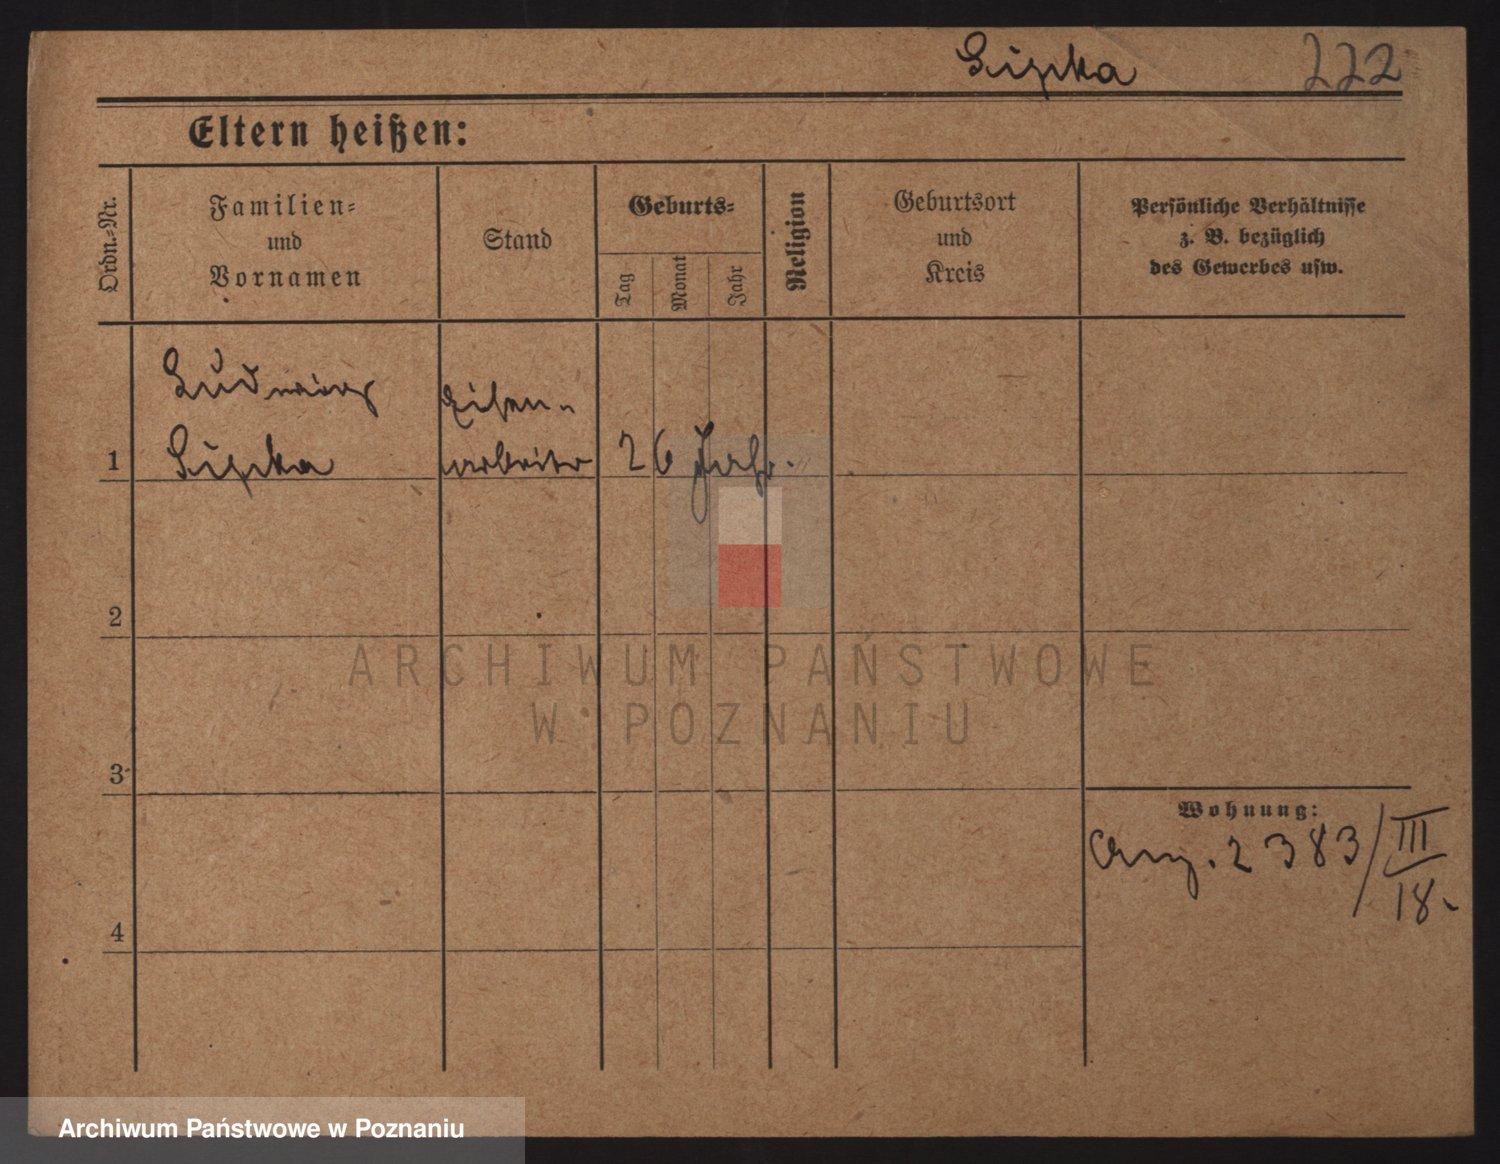 Lipka 222
Eltern heißen:
Ordn.-Nr.
Familien-
und
Vornamen
Stand
Geburts-
Tag
Monat
Jahr
Religion
Geburtsort
und
Kreis
Persönliche Verhältnisse
z. B. bezüglich
des Gewerbes usw.
1
Ludwig
Lipka
Eisen-
arbeiter
26 Jahr.
2
3
4
Wohnung:
Anz. 2383/III
18.
ARCHIWUM PAŃSTWOWE
W POZNANIU
Archiwum Państwowe w Poznaniu